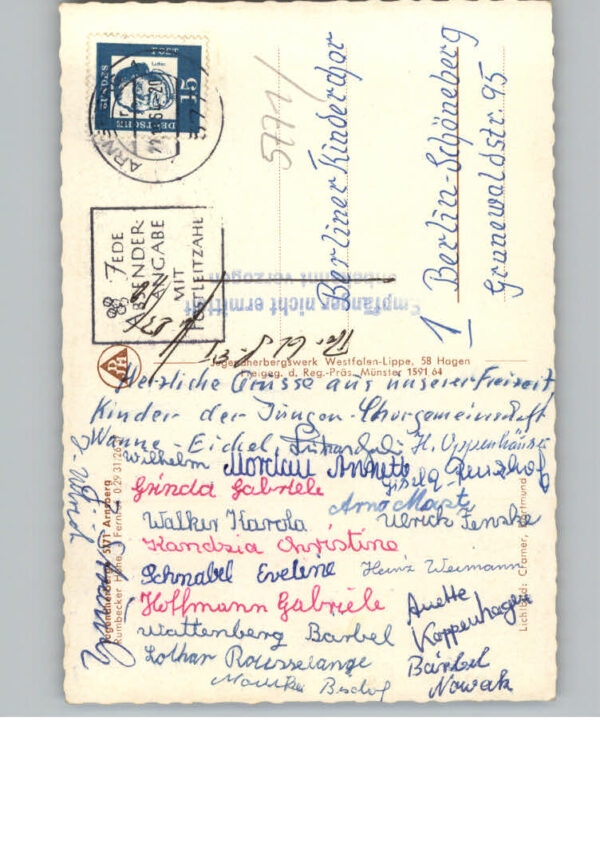 15
DEUTSCHE
5771
JEDE
ABSENDER-
ANGABE
MIT
POSTLEITZAHL
Berliner Kinderchor
1 Berlin-Schöneberg
Grunewaldstr. 95
Empfänger nicht ermittelt
unbekannt verzogen
Jugendherbergswerk Westfalen-Lippe, 58 Hagen
Freigeg. d. Reg.-Präs. Münster 1591/64
Herzliche Grüsse aus unserer Freizeit
Kinder der Jungen-Chorgemeinschaft
Wanne-Eickel
H. Oppenhäuser
Wilhelm
Annette
Gisela
Grinda Gabriele
Arno
Walker Karola
Ulrich Fenske
Kandzia Christine
Schnabel Eveline
Heinz Weimann
Hoffmann Gabriele
Anette
Koppenhagen
Wattenberg Bärbel
Lothar Rousselange
Bärbel
Nowak
Jugendherberge 5771 Arnsberg
Rumbecker Höhe
Lichtbild: Cramer, Dortmund